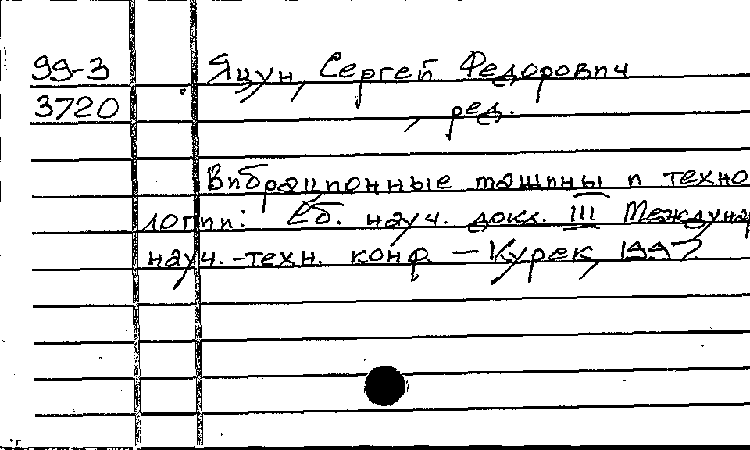 99-3 Яцун, Сергей Федорович
3720 , ред.
Вибрационные машины и техно
логии: Сб. науч. докл. III Междунар
науч.-техн. конф. – Курск, 1997